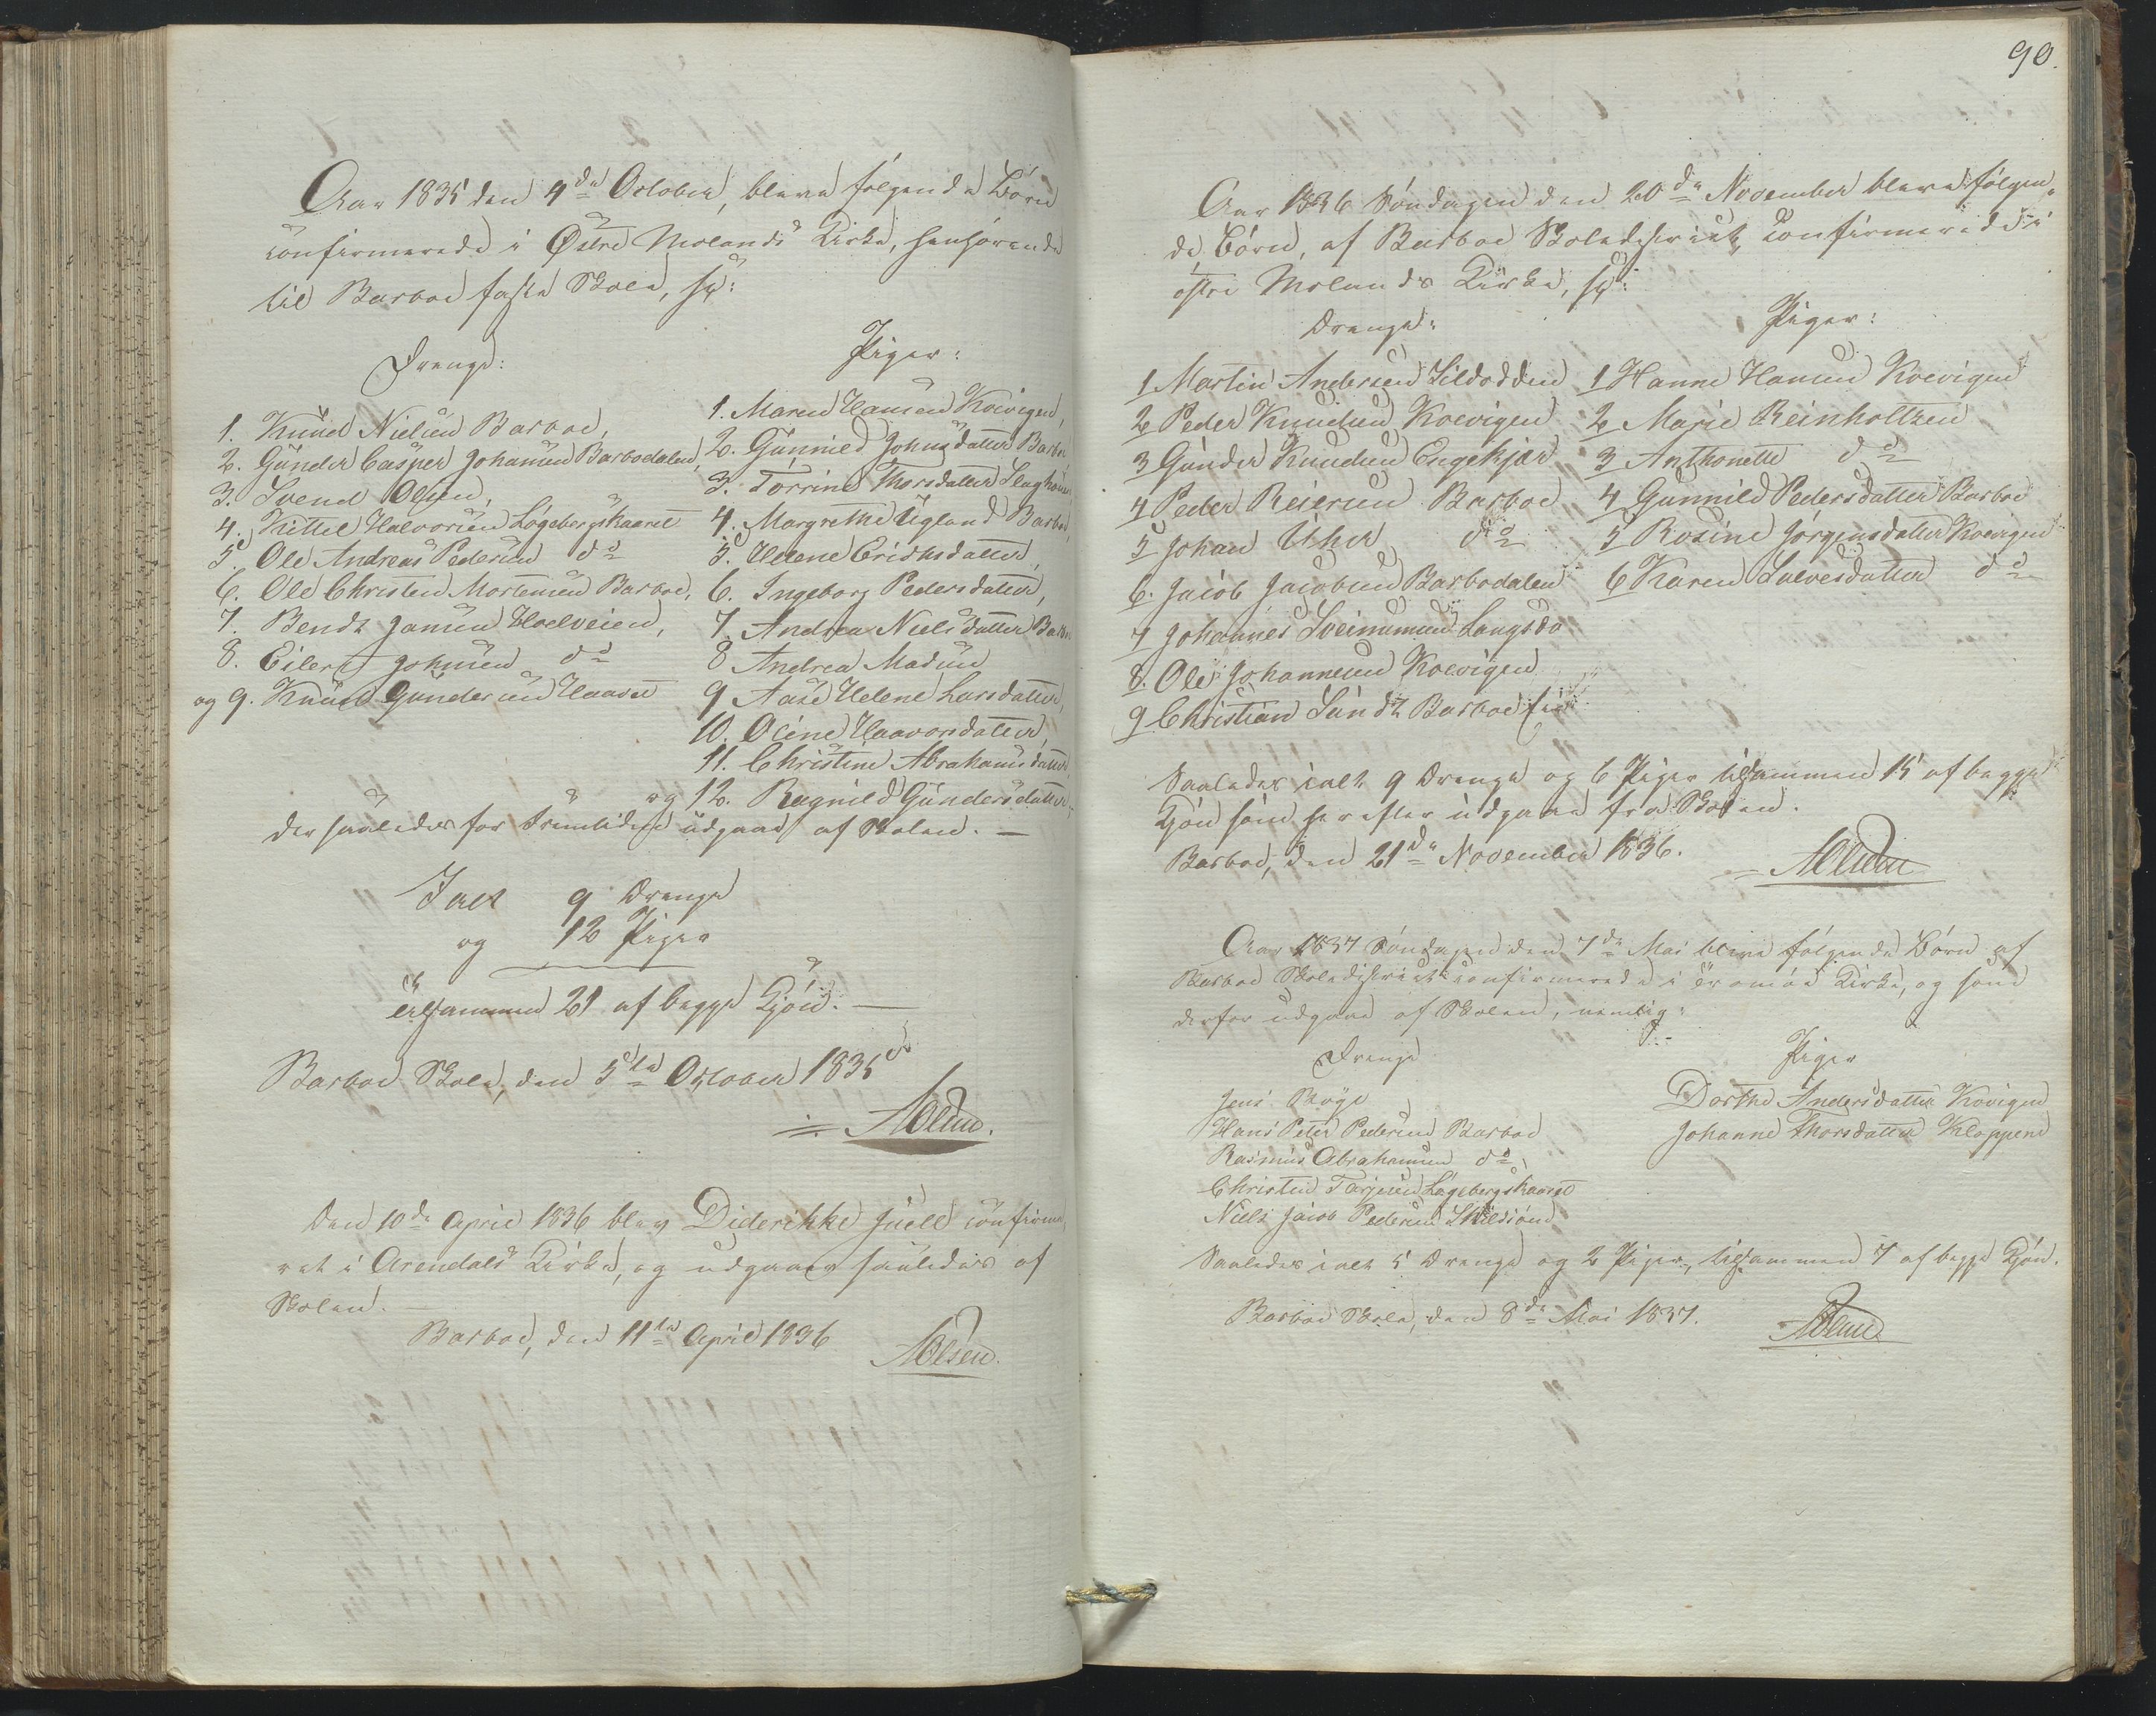 Aar 1835 den 4de October, bleve følgende Børn
confirmerede i Østre Molands Kirke, henhørende
til Barboe faste Skole, sc:
Drenge:
1. Knud Nielsen Barboe,
2. Gunder Casper Johansen Barbodalen,
3. Svend Olsen,
4. Kittel Halvorsen Løgebergskaaret
5. Ole Andreas Pedersen do
6. Ole Christen Mortensen Barboe,
7. Bendt Jansen Hoelveien,
8. Eilert Johnsen do
og 9. Knud Gundersen Haavet
Piger:
1. Maren Hansen Koevigen,
2. Gunnild Johnsdatter Barbo
3. Torrine Thorsdatter
4. Margrethe Ugland Barboe,
5. Helene Erichsdatter,
6. Ingeborg Pedersdatter,
7. Andrea Nielsdatter Barbo
8 Andrea Madsen
9 Aase Helene Larsdatter,
10. Oline Haavorsdatter,
11. Christine Abrahamsdatter
og 12. Ragnild Gundersdatter,
der saaledes for Fremtiden udgaae af Skolen. —
Ialt 9 Drenge
og 12 Piger
tilsammen 21 af begge Kjøn. —
Barboe Skole, den 5te October 1835
AOlsen.
Den 10de April 1836 blev Diderikke Juell confirme
ret i Arendals Kirke, og udgaaer saaledes af
Skolen. —
Barboe, den 11te April 1836
AOlsen.
90.
Aar 1836 Søndagen den 20de November bleve følgen-
de Børn, af Barboe Skoledistrict, confirmerede i
østre Molands Kirke, sc:
Drenge:
1 Martin Andersen Sildodden
2 Peder Knudsen Koevigen
3 Gunder Knudsen Engekjær
4 Peder Reiersen Barboe
5 Johan Uher do
6. Jacob Jacobsen Barbodalen
7 Johannes Sveinumsen Langsdo
8. Ole Johannesen Koevigen
9 Christian Lundt Barboe
Piger:
1 Hanne Hansen Koevigen
2 Marie Reinholtzen
3 Anthonette do
4 Gunnild Pedersdatter Barboe
5 Rosine Jørgensdatter Koevigen
6 Karen Salvesdatter do
Saaledes ialt 9 Drenge og 6 Piger tilsammen 15 af begge
Kjøn som herefter udgaae fra Skolen.
Barboe, den 21de November 1836.
AOlsen
Aar 1837 Søndagen den 7de Mai bleve følgende Børn af
Barboe Skoledistrict confirmerede i Tromøe Kirke, og som
derfor udgaae af Skolen, nemlig:
Drenge
Jens Bøye
Hans Peter Pedersen Barboe
Rasmus Abrahamsen do
Christen Tarjesen Løgebergskaaret
Niels Jacob Pedersen
Piger
Dorthe Andersdatter Kovigen
Johanne Thorsdatter Kloppene
Saaledes ialt 5 Drenge og 2 Piger, tilsammen 7 af begge Kjøn.
Barboe Skole, den 8de Mai 1837.
AOlsen